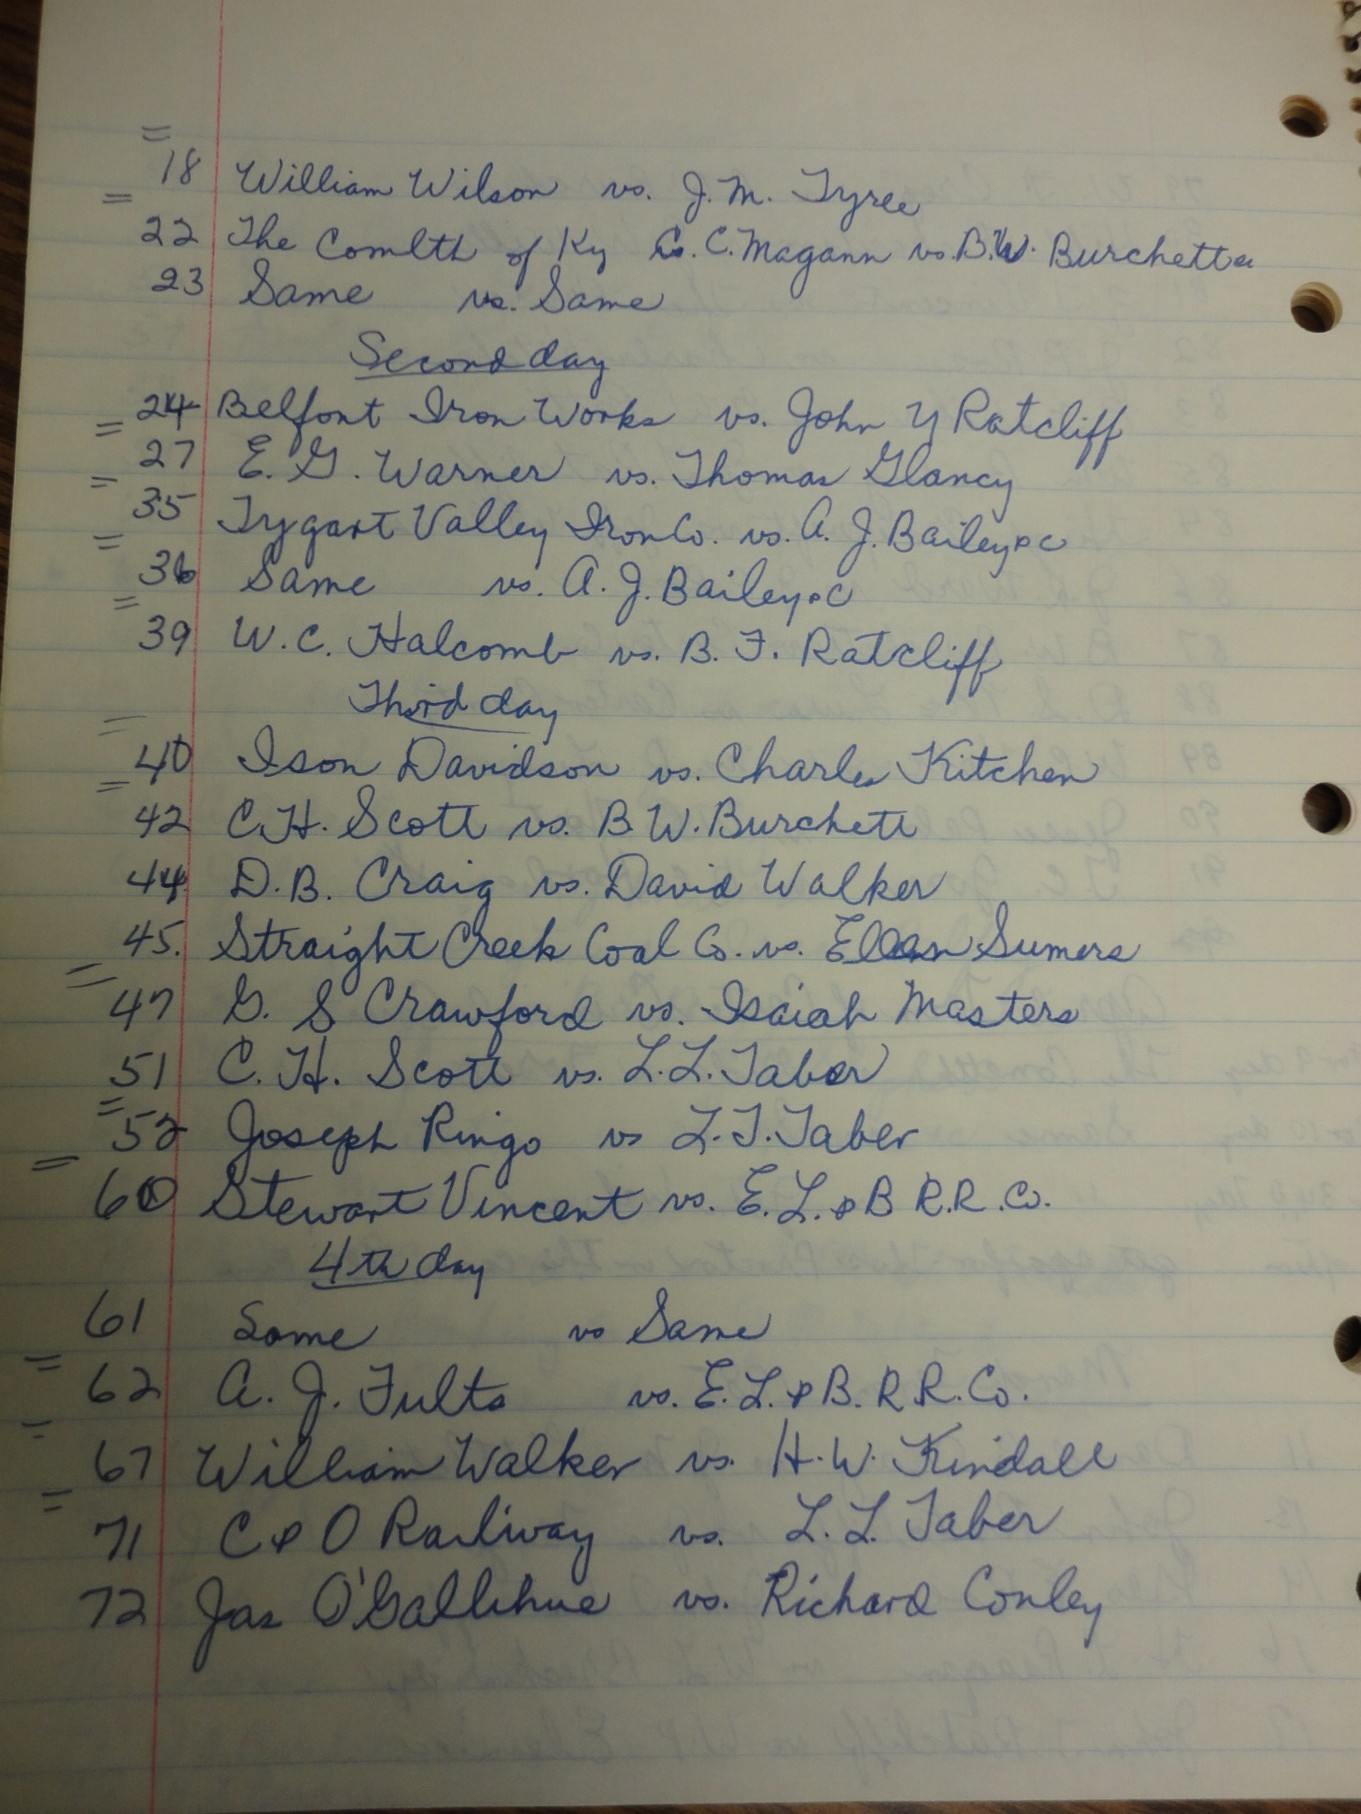 =
18 William Wilson vs. J. M. Tyree
=
22 The Comlth of Ky Co. C. Magann vs. B.W. Burchett &
23 Same vs. Same
Second day
24 Belfont Iron Works vs. John Y Ratcliff
=
27 E. G. Warner vs. Thomas Glancy
=
35 Tygart Valley Iron Co. vs. A. J. Bailey &c
=
36 Same vs. A. J. Bailey &c
=
39 W. C. Halcomb vs. B. F. Ratcliff
Third day
=
40 Ison Davidson vs. Charles Kitchen
=
42 C.H. Scott vs. B W. Burchett
44 D. B. Craig vs. David Walker
45. Straight Creek Coal Co. vs. Ellen Sumers
=
47 G. S Crawford vs. Isaiah Masters
51 C. H. Scott vs. L. L. Taber
=
52 Joseph Ringo vs L. T. Taber
=
60 Stewart Vincent vs. E. L. & B R.R. Co.
4th day
61 Same vs Same
=
62 A. J. Fults vs. E. L. & B. R R. Co.
=
67 William Walker vs. H. W. Kindall
=
71 C & O Railway vs. L. L. Taber
72 Jas O'Gallihue vs. Richard Conley